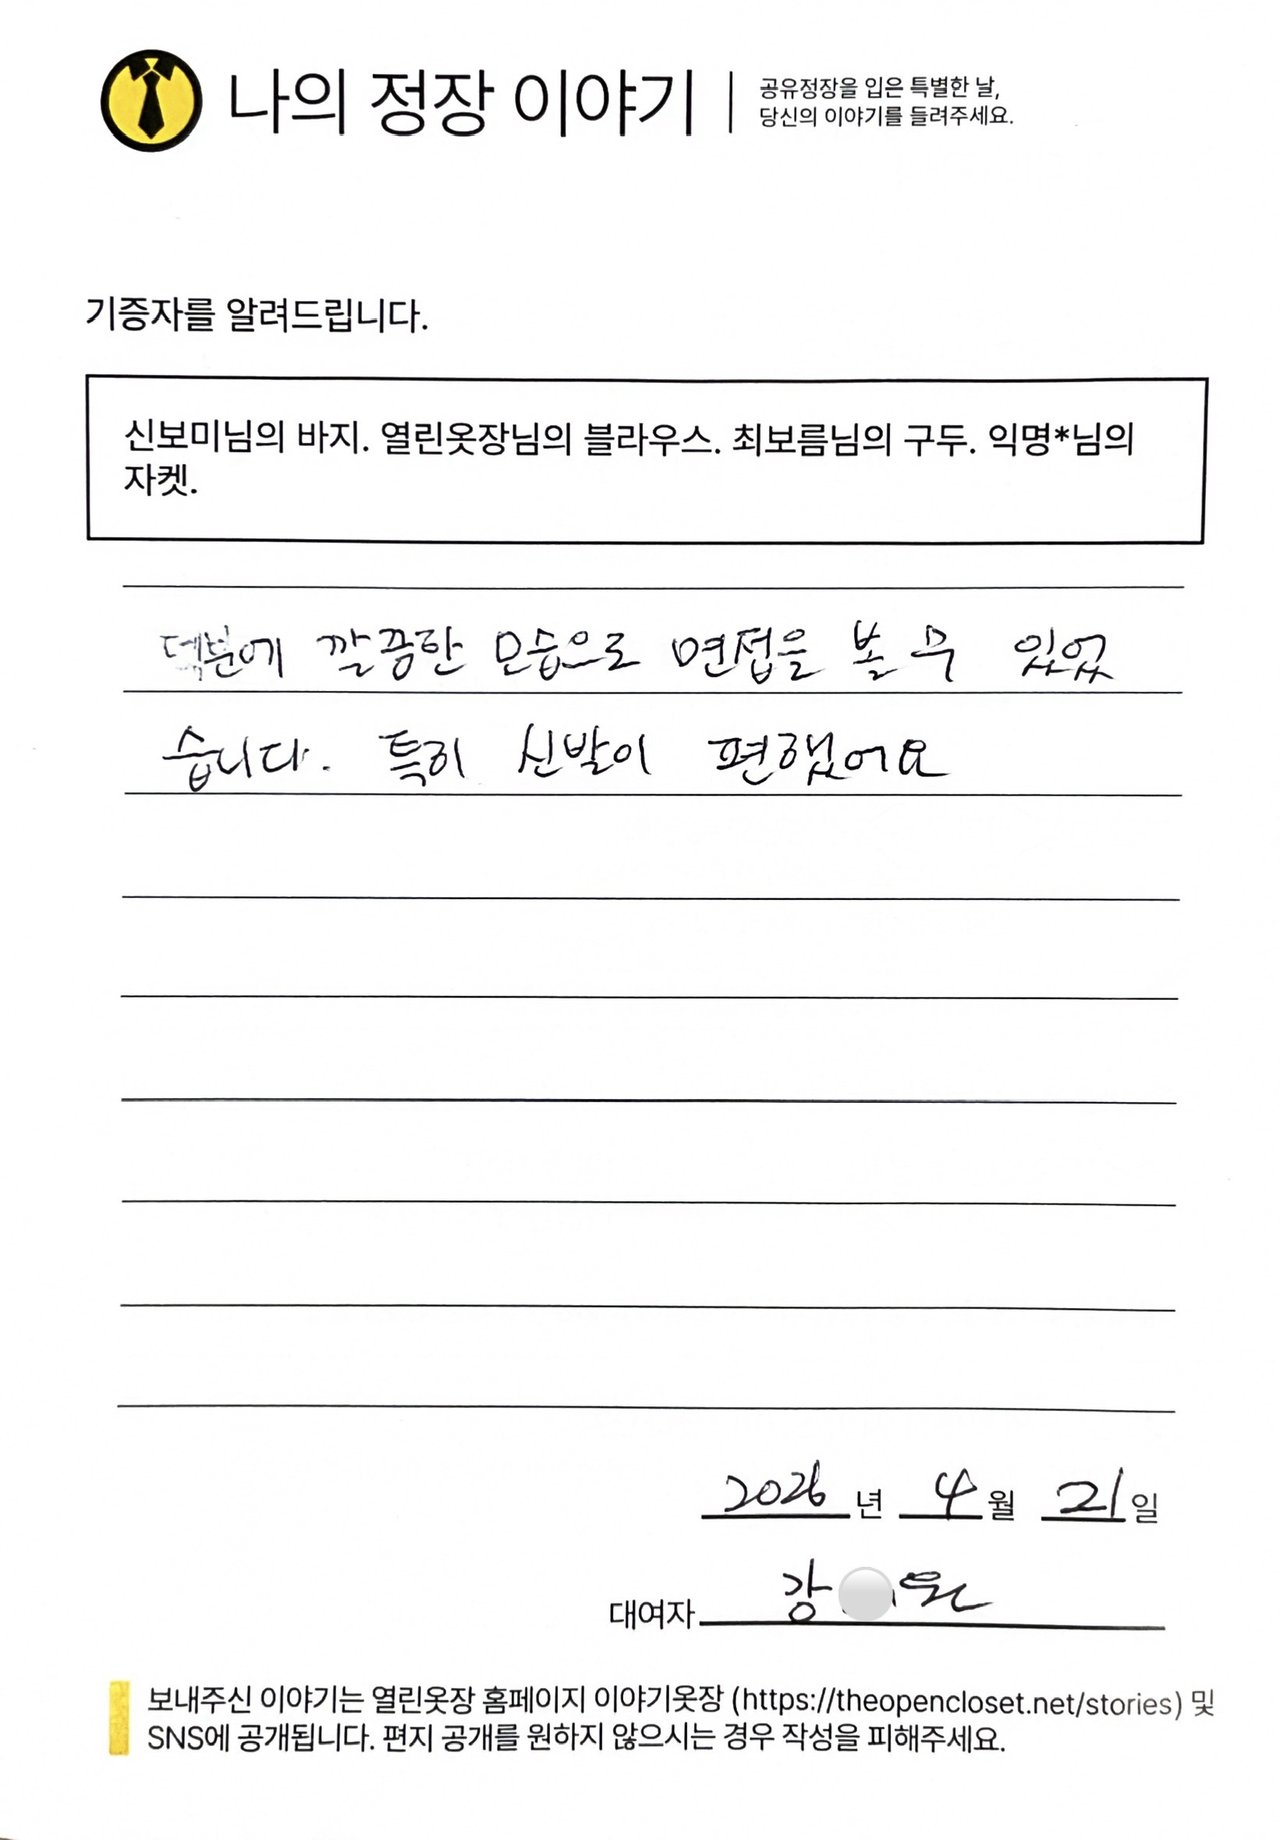 나의 정장 이야기
공유정장을 입은 특별한 날,
당신의 이야기를 들려주세요.
기증자를 알려드립니다.
신보미님의 바지. 열린옷장님의 블라우스. 최보름님의 구두. 익명*님의
자켓.
덕분에 깔끔한 모습으로 면접을 볼 수 있었
습니다. 특히 신발이 편했어요
2026 년 4 월 21 일
대여자 강 원
보내주신 이야기는 열린옷장 홈페이지 이야기옷장 (https://theopencloset.net/stories) 및
SNS에 공개됩니다. 편지 공개를 원하지 않으시는 경우 작성을 피해주세요.